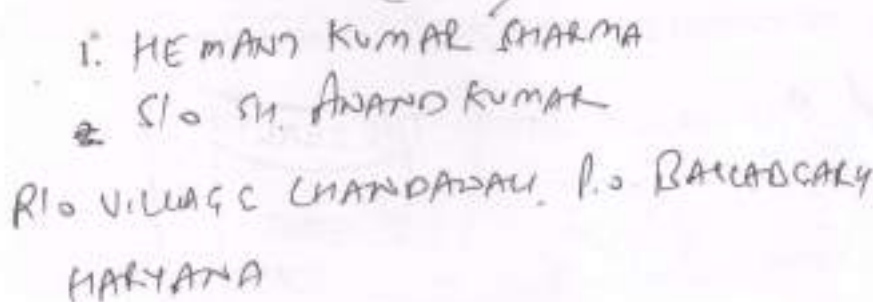 1. HEMANT KUMAR SHARMA
S/o SH. ANAND KUMAR
R/o VILLAGE CHANDAWALI. P.o BALLABGARH
HARYANA